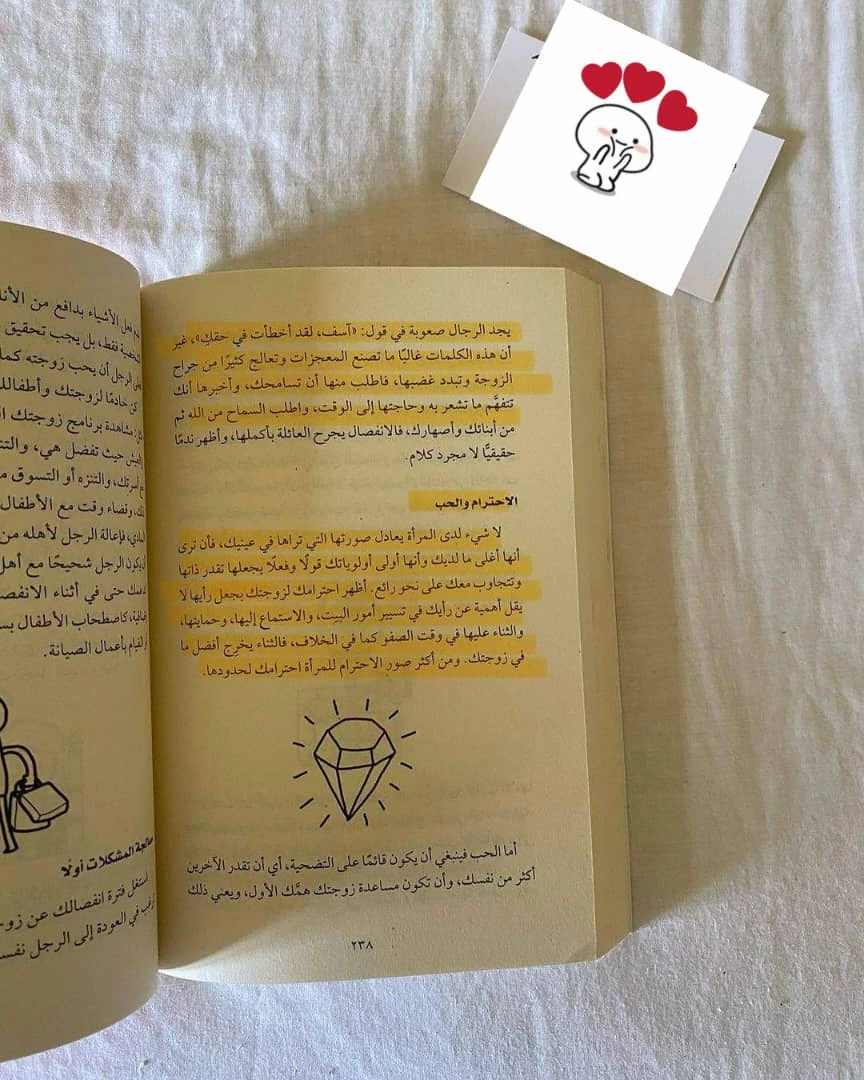 يجد الرجال صعوبة في قول: «آسف، لقد أخطأت في حقكِ»، غير
أن هذه الكلمات غالبًا ما تصنع المعجزات وتعالج كثيرًا من جراح
الزوجة وتبدد غضبها، فاطلب منها أن تسامحك، وأخبرها أنك
تتفهَّم ما تشعر به وحاجتها إلى الوقت، واطلب السماح من الله ثم
من أبنائك وأصهارك، فالانفصال يجرح العائلة بأكملها، وأظهر ندمًا
حقيقيًّا لا مجرد كلام.
الاحترام والحب
لا شيء لدى المرأة يعادل صورتها التي تراها في عينيك، فأن ترى
أنها أغلى ما لديك وأنها أولى أولوياتك قولًا وفعلًا يجعلها تقدر ذاتها
وتتجاوب معك على نحو رائع. أظهر احترامك لزوجتك بجعل رأيها لا
يقل أهمية عن رأيك في تسيير أمور البيت، والاستماع إليها، وحمايتها،
والثناء عليها في وقت الصفو كما في الخلاف، فالثناء يخرج أفضل ما
في زوجتك. ومن أكثر صور الاحترام للمرأة احترامك لحدودها.
أما الحب فينبغي أن يكون قائمًا على التضحية، أي أن تقدر الآخرين
أكثر من نفسك، وأن تكون مساعدة زوجتك همَّك الأول، ويعني ذلك
٢٣٨
فعل الأشياء بدافع من الأنا
فقط، بل يجب تحقيق
الرجل أن يحب زوجته كما
كن خادمًا لزوجتك وأطفالك
مشاهدة برنامج زوجتك
حيث تفضل هي، والتن
أسرتك، والتنزه أو التسوق م
وقضاء وقت مع الأطفال
المادي، فإعالة الرجل لأهله من
أن يكون الرجل شحيحًا مع أهل
حتى في أثناء الانفص
كاصطحاب الأطفال بس
القيام بأعمال الصيانة.
معالجة المشكلات أولًا
استغل فترة انفصالك عن زو
في العودة إلى الرجل نفس